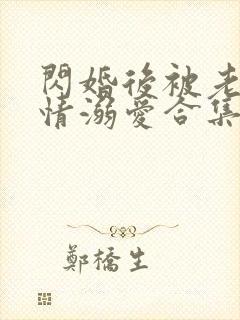 閃婚後被老
情溺愛合集
鄭橋生